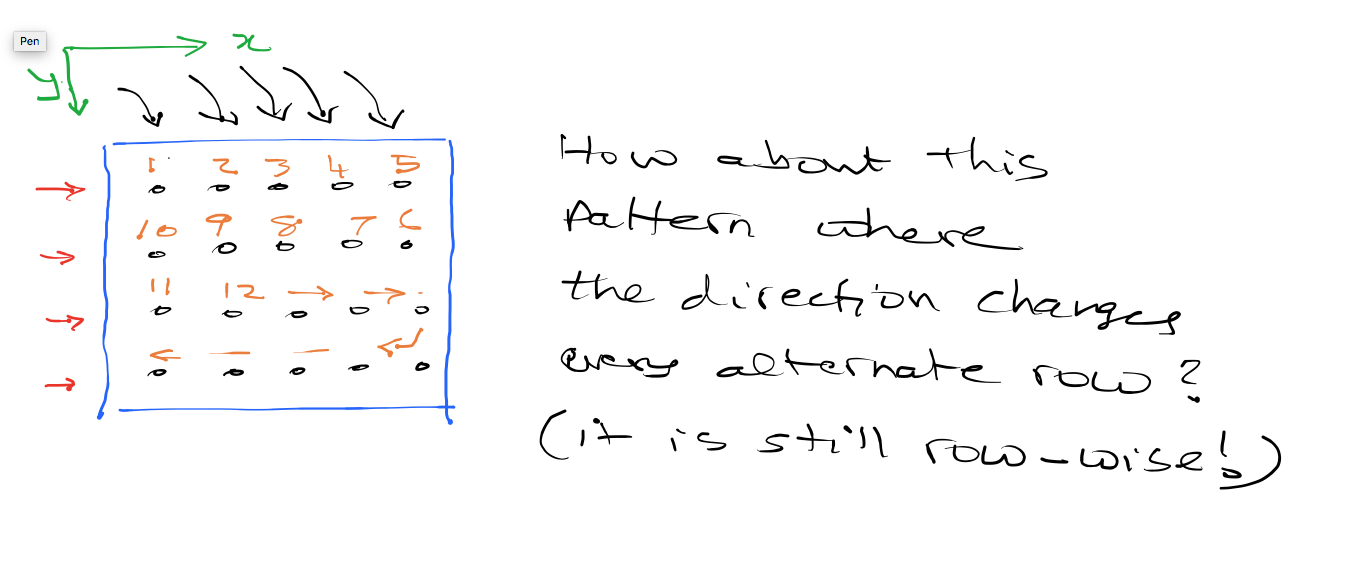 Pen
x
y
1 2 3 4 5
10 9 8 7 6
11 12
How about this
pattern where
the direction changes
every alternate row?
(it is still row-wise!)